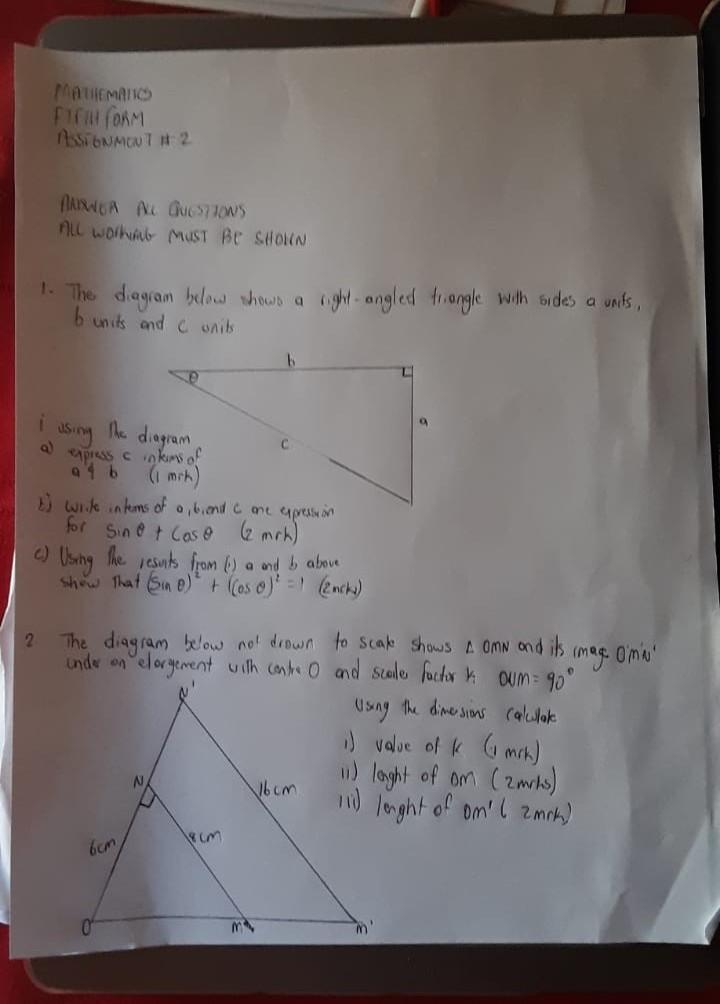 MATHEMATICS
FIFTH FORM
ASSIGNMENT # 2
ANSWER ALL QUESTIONS
ALL WORKING MUST BE SHOWN
1. The diagram below shows a right-angled triangle with sides a units,
b units and c units
b
θ
a
c
i using the diagram
a) express c in terms of
a & b (1 mrk)
b) write in terms of a, b, and c one expression
for Sin θ + Cos θ (2 mrk)
c) Using the results from (i) a and b above
show that (Sin θ)² + (Cos θ)² = 1 (2 mrks)
2 The diagram below not drawn to scale shows Δ OMN and its image O'M'N'
under an elargement with centre O and scale factor k. OUM = 90°
Using the dimesions calculate
i) value of k (1 mrk)
ii) lenght of OM (2 mrks)
iii) lenght of OM' (2 mrk)
N'
N
16cm
6cm
8cm
O
M
M'